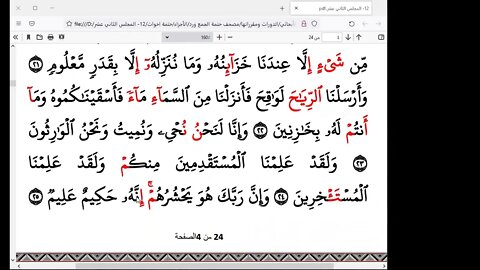 12- المجلس الثاني عشر.pdf
مِّن شَىْءٍ إِلَّا عِندَنَا خَزَآئِنُهُۥ وَمَا نُنَزِّلُهُۥٓ إِلَّا بِقَدَرٍ مَّعْلُومٍ ٢١
وَأَرْسَلْنَا الرِّيَاحَ لَوَاقِحَ فَأَنزَلْنَا مِنَ السَّمَآءِ مَآءً فَأَسْقَيْنَاكُمُوهُ وَمَآ
أَنتُمْ لَهُۥ بِخَازِنِينَ ٢٢ وَإِنَّا لَنَحْنُ نُحْىِۦ وَنُمِيتُ وَنَحْنُ الْوَارِثُونَ
٢٣ وَلَقَدْ عَلِمْنَا الْمُسْتَقْدِمِينَ مِنكُمْ وَلَقَدْ عَلِمْنَا
الْمُسْتَـْٔخِرِينَ ٢٤ وَإِنَّ رَبَّكَ هُوَ يَحْشُرُهُمْ ۚ إِنَّهُۥ حَكِيمٌ عَلِيمٌ ٢٥
24 من 4الصفحة